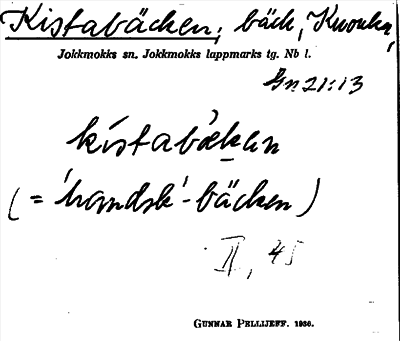 Kistabäcken; bäck,
Jokkmokks sn. Jokkmokks lappmarks tg. Nb l.
Gn 21:13
kistabäkan
(= -bäcken)
II, 45
GUNNAR PELLIJEFF. 1936.